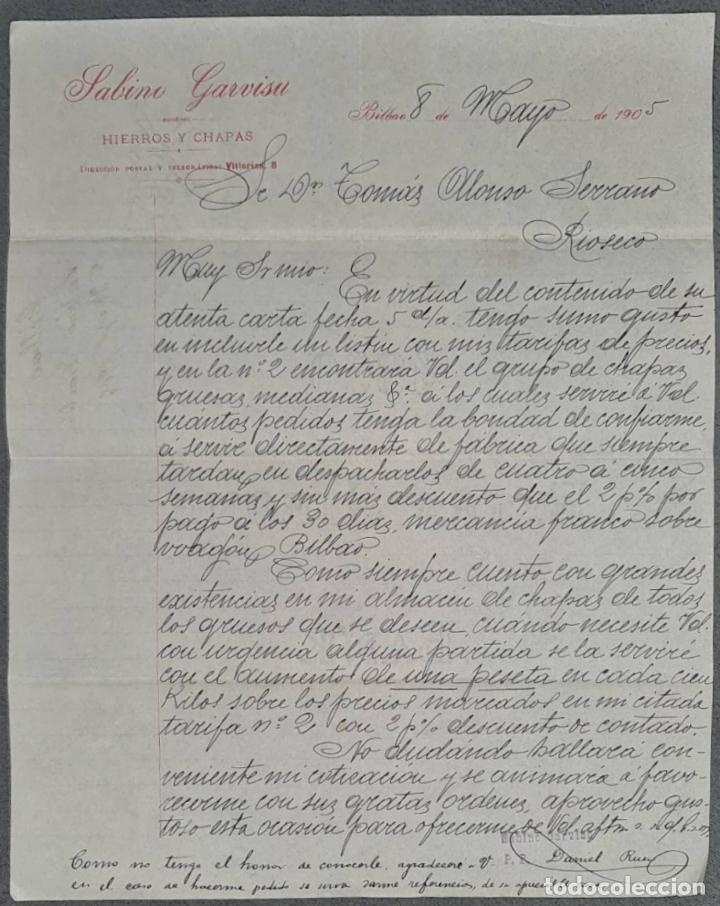 Sabino Garvisu
HIERROS Y CHAPAS
DIRECCIÓN POSTAL Y TELEGRÁFICA: Vittorica, 8
Bilbao 8 de Mayo de 1905
Sr Dn Tomás Alonso Serrano
Rioseco
Muy Sr mio: En virtud del contenido de su
atenta carta fecha 5 d/a. tengo sumo gusto
en incluirle un listin con mis tarifas de precios,
y en la nº 2 encontrará Vd. el grupo de chapas
gruesas, medianas &ª á los cuales serviré á Vd.
cuántos pedidos tenga la bondad de confiarme,
á servir directamente de fábrica que siempre
tardan en despacharlos de cuatro á cinco
semanas y sin más descuento que el 2 p% por
pago á los 30 dias, mercancia franco sobre
wagón Bilbao.
Como siempre cuento con grandes
existencias en mi almacén de chapas de todos
los gruesos que se deseen, cuándo necesite Vd.
con urgencia alguna partida se la serviré
con el aumento de una peseta en cada cien
Kilos sobre los precios marcados en mi citada
tarifa nº 2 con 2 p% descuento de contado.
No dudando hallará con-
veniente mi cotización y se animará á favo-
recerme con sus gratas ordenes, aprovecho gus-
toso esta ocasión para ofrecerme de Vd. aftmo s. s. q. b. s. m.
Sabino Garvisu
P. P. Daniel
Como no tengo el honor de conocerle, agradeceré á V.
en el caso de hacerme pedido se sirva darme referencias, de su apreciable
todocoleccion
todocoleccion.net